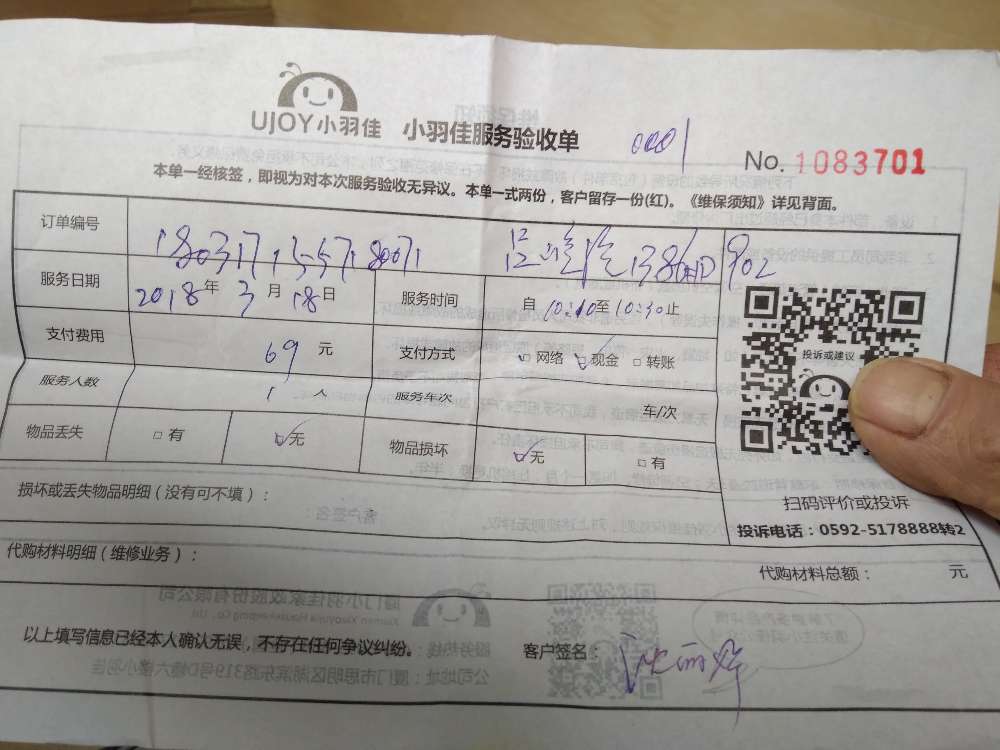 UJOY小羽佳 小羽佳服务验收单 0001
No. 1083701
本单一经核签，即视为对本次服务验收无异议。本单一式两份，客户留存一份(红)。《维保须知》详见背面。
订单编号 1803171557180071
902
服务日期 2018年 3月18日 服务时间 自10:10至10:30止
支付费用 69元 支付方式 □网络 ☑现金 □转账
服务人数 1人 服务车次 车/次
物品丢失 □有 ☑无 物品损坏 ☑无 □有
投诉或建议
扫码评价或投诉
投诉电话：0592-5178888转2
损坏或丢失物品明细（没有可不填）：
代购材料明细（维修业务）： 代购材料总额： 元
以上填写信息已经本人确认无误，不存在任何争议纠纷。 客户签名：